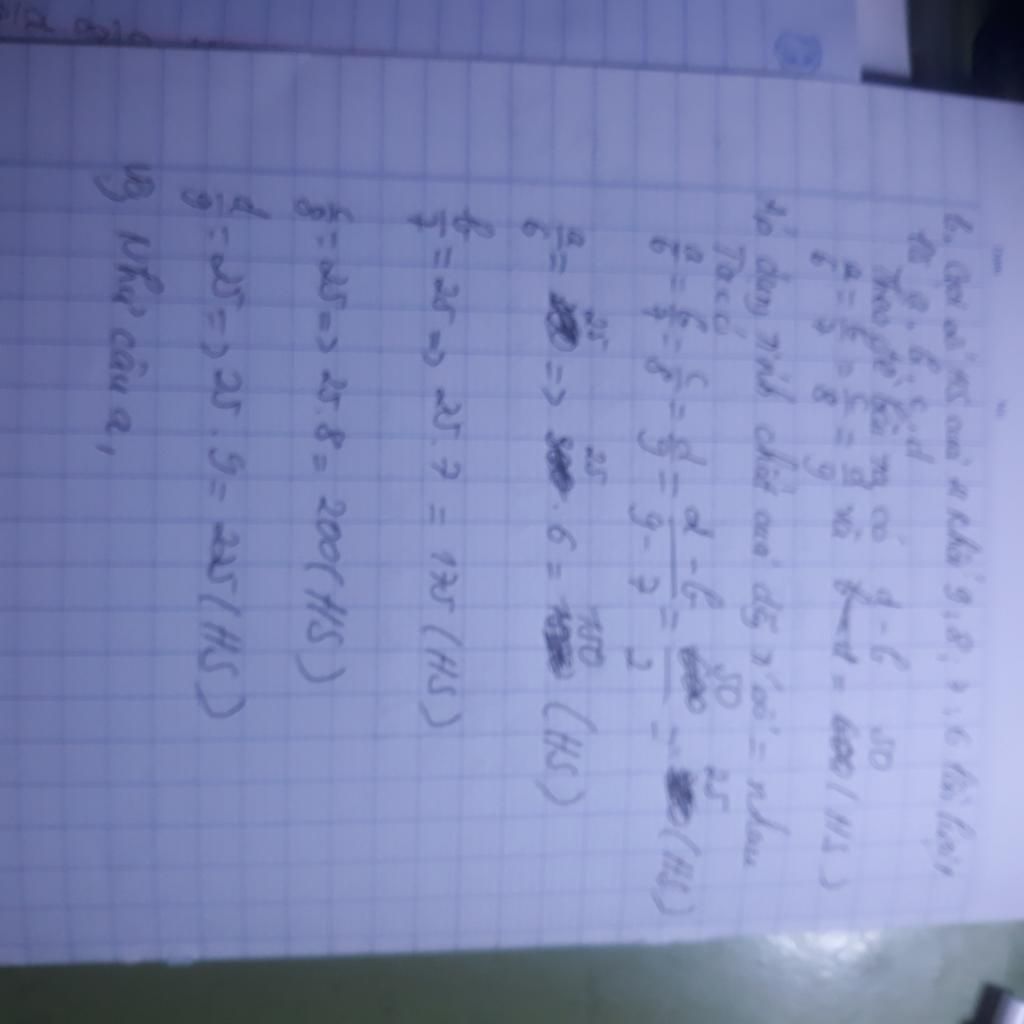 b, Gọi số HS của 4 khối 9, 8, 7, 6 lần lượt
là a, b, c, d
Theo đề bài ng có d - b
a/6 = b/7 = c/8 = d/9 và = 50 (HS)
Áp dụng t/c dãy tỉ số = nhau
Ta có
a/6 = b/7 = c/8 = d/9 = d - b / 9 - 7 = 50 / 2 = 25 (HS)
a/6 = 25 => 25 . 6 = 150 (HS)
b/7 = 25 => 25 . 7 = 175 (HS)
c/8 = 25 => 25 . 8 = 200 (HS)
d/9 = 25 => 25 . 9 = 225 (HS)
Vậy Như câu a,